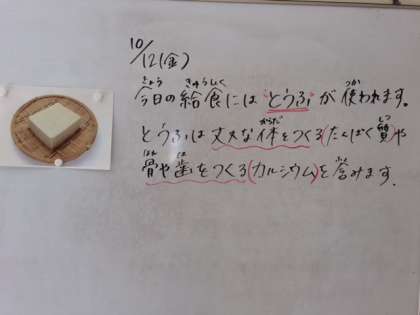 10/12(金)
きょう きゅうしょく つか
今日の給食には"とうふ"が使われます。
からだ しつ
とうふは丈夫な体をつくる(たんぱく質)や
ほね は ふく
骨や歯をつくる(カルシウム)を含みます。